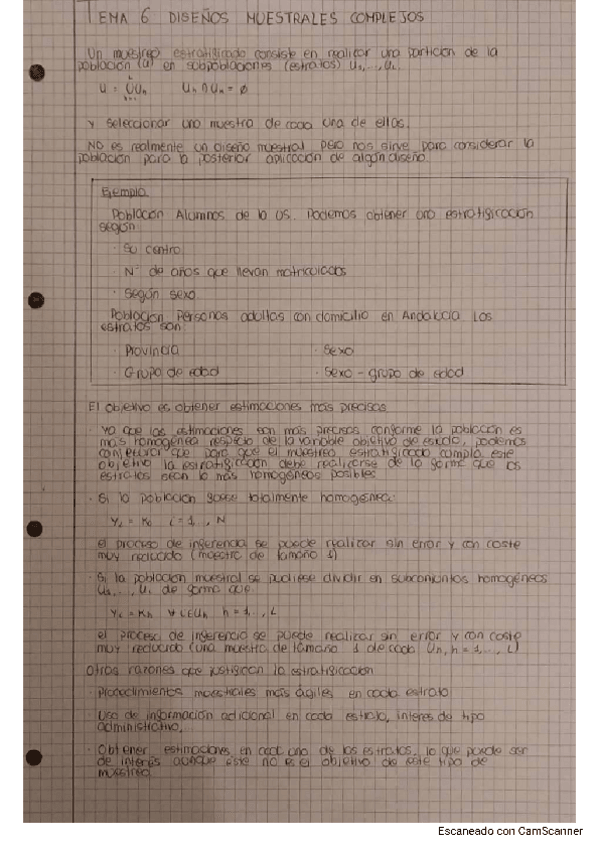 TEMA 6 DISEÑOS MUESTRALES COMPLEJOS
Un muestreo estratificado consiste en realizar una partición de la
población (U) en subpoblaciones (estratos) U₁,...,U_L
U = ∪U_h   U_h ∩ U_h = ∅
y seleccionar una muestra de cada una de ellos.
NO es realmente un diseño muestral pero nos sirve para considerar la
población para la posterior aplicación de algún diseño.
Ejemplo
Población Alumnos de la US. Podemos obtener una estratificación
según
· Su centro
· Nº de años que llevan matriculados
· Según sexo
Población Personas adultas con domicilio en Andalucía Los
estratos son
· Provincia   · Sexo
· Grupo de edad   · Sexo - grupo de edad
El objetivo es obtener estimaciones más precisas
· Ya que las estimaciones son más precisas conforme la población es
más homogénea respecto de la variable objetivo de estudio, podemos
conjeturar que para que el muestreo estratificado cumpla este
objetivo la estratificación debe realizarse de la forma que los
estratos sean lo más homogéneos posibles
· Si la población fuese totalmente homogénea:
Y_i = K, i = 1,..., N
el proceso de inferencia se puede realizar sin error y con coste
muy reducido (muestra de tamaño 1)
· Si la población muestral se pudiese dividir en subconjuntos homogéneos
U₁,..., U_L de forma que
Y_i = K_h ∀ i ∈ U_h h = 1,..., L
el proceso de inferencia se puede realizar sin error y con coste
muy reducido (una muestra de tamaño 1 de cada U_h, h = 1,..., L)
Otras razones que justifican la estratificación
· Procedimientos muestrales más ágiles en cada estrato
· Uso de información adicional en cada estrato, interés de tipo
administrativo,...
· Obtener estimaciones en cada uno de los estratos, lo que puede ser
de interés aunque éste no es el objetivo de este tipo de
muestreo
Escaneado con CamScanner